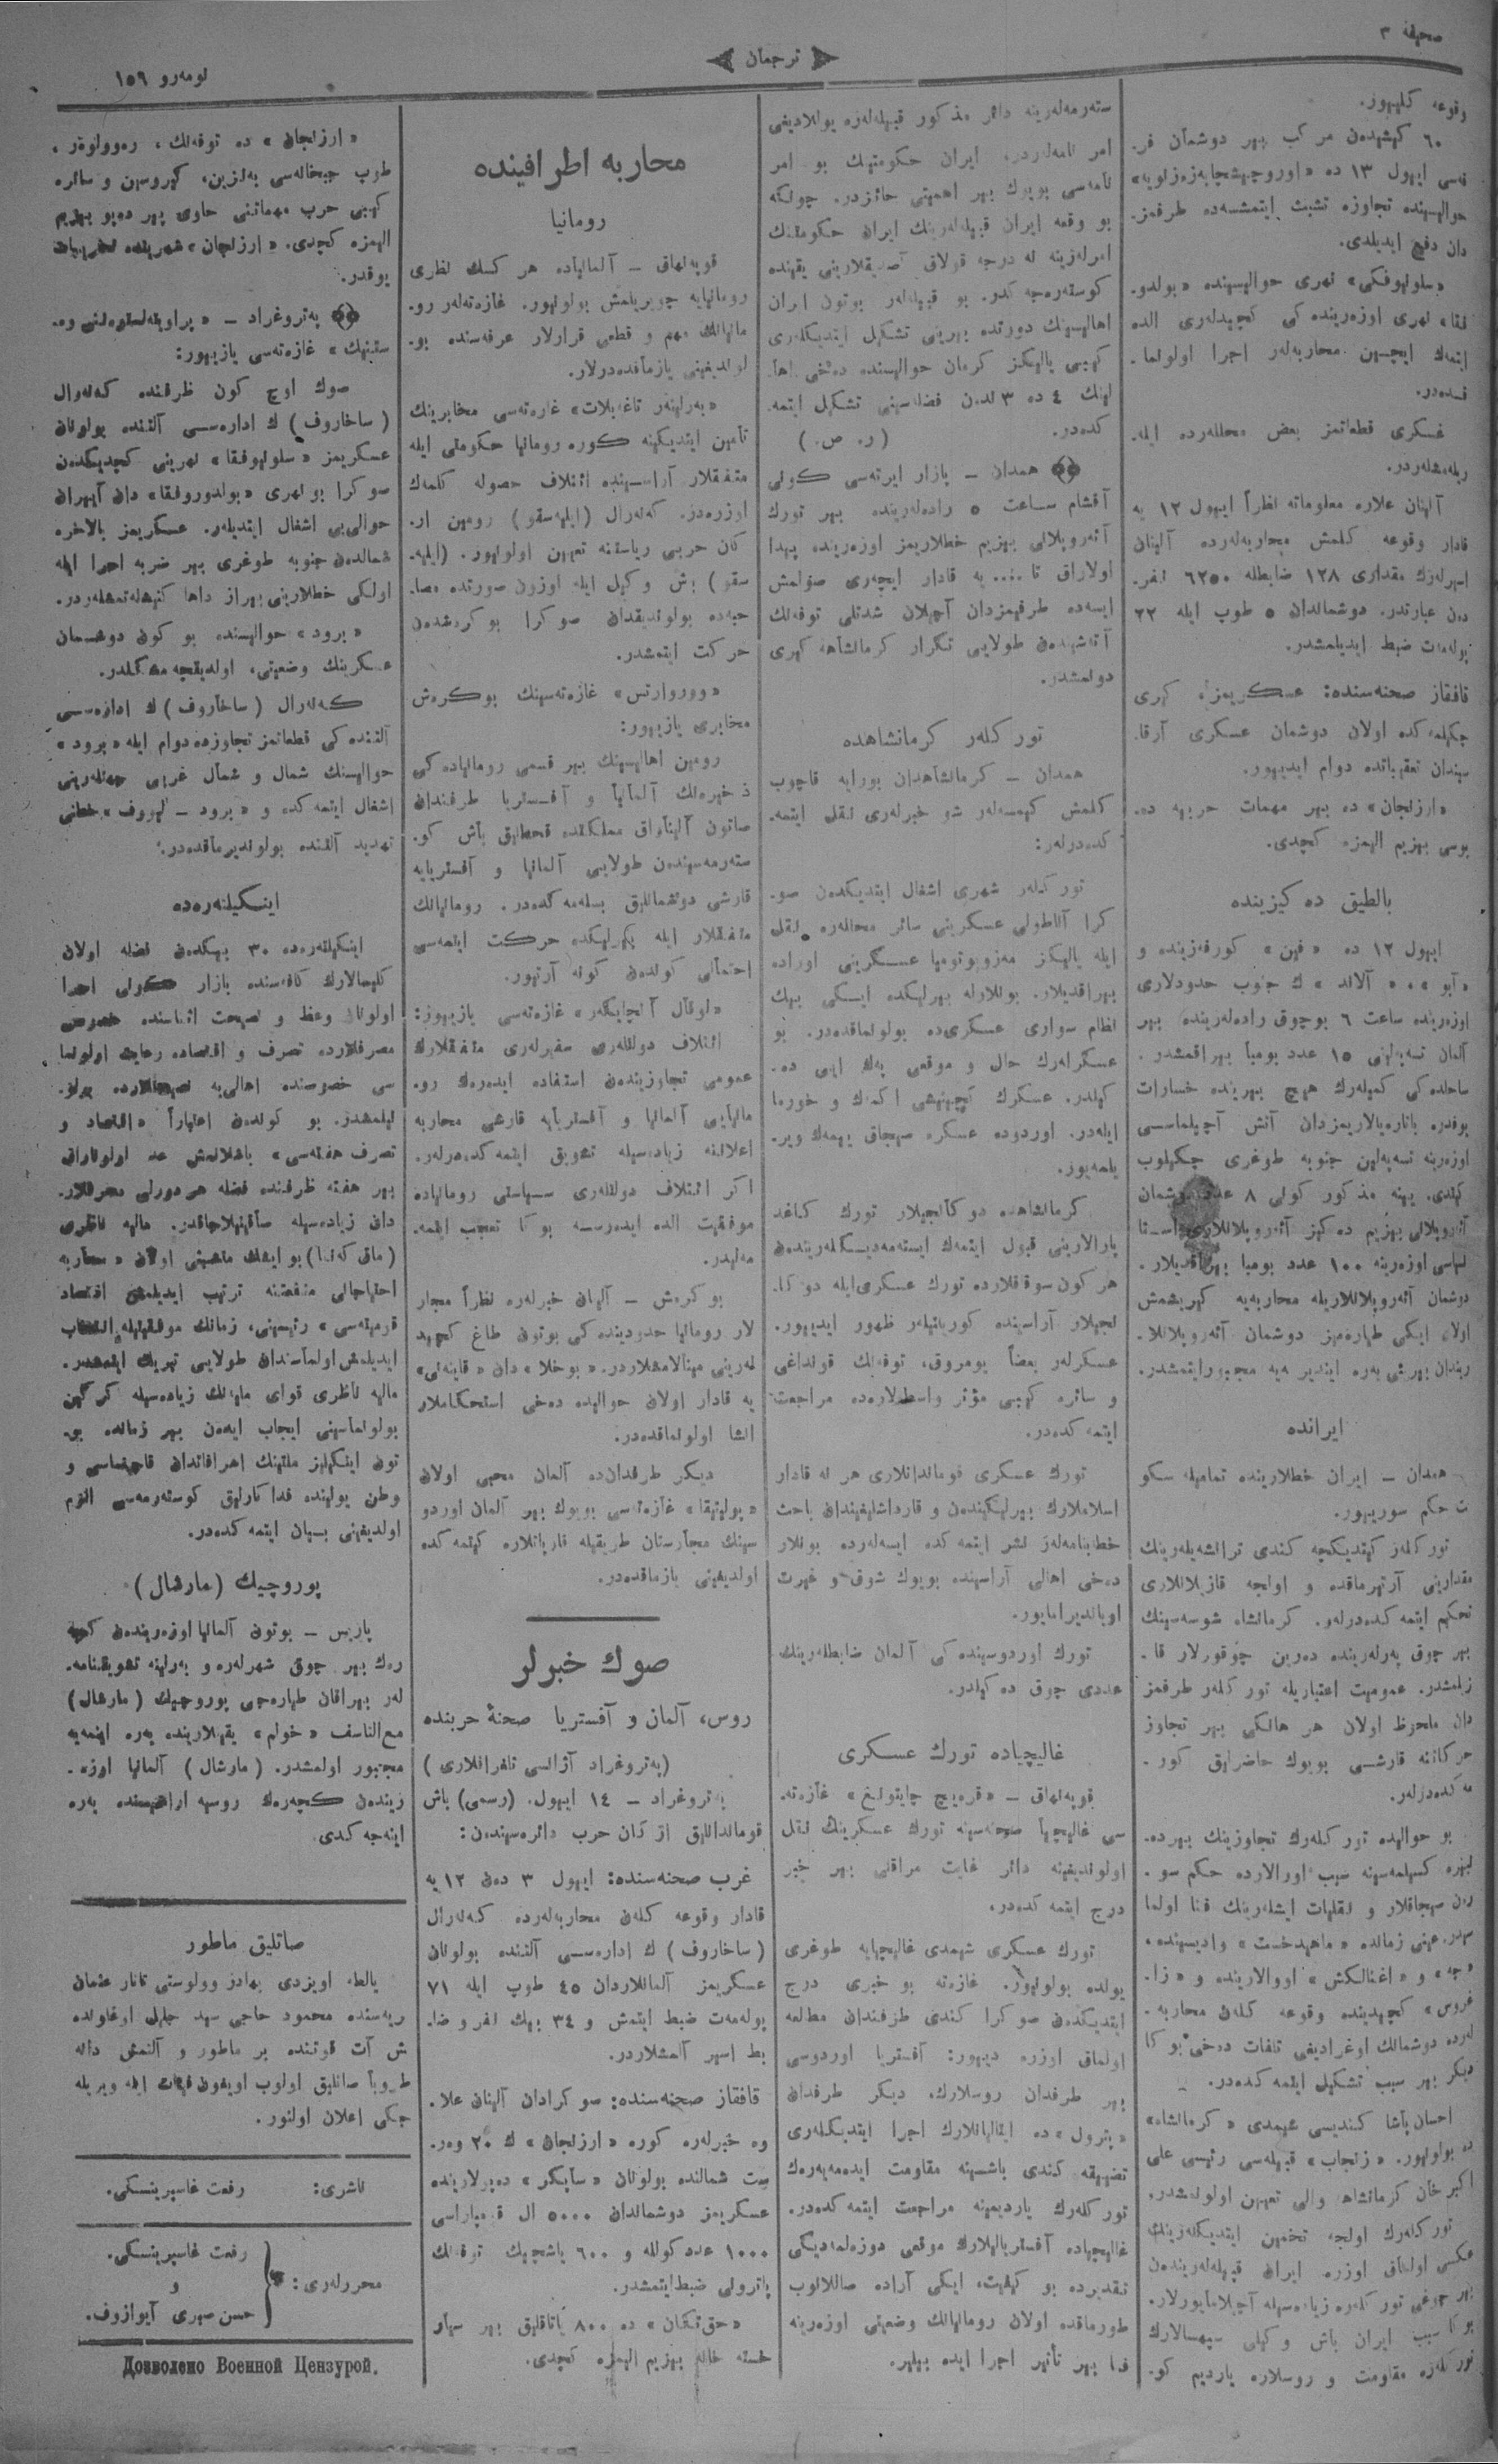 صحیفه ٣
ترجمان
نومەرو ١٥٩
وقوعه كلیور.
٦٠ كیشیدەن مركب بیر دوشمان فر-
قەسی ایول ١٣ ده
حوالیسنده تجاوزه تشبث ایتمشسەده طرفمز-
دان دفع ایدیلدی.
نهری حوالیسنده
نهری اوزەرینده كی كچیدلەری الده
ایتمەك ایچین محاربەلەر اجرا اولونما-
قدەدر.
عسكری قطعاتمز بعض محللەرده ایلە-
ریلەمشلەردر.
آلینان علاوه معلوماته نظراً ایول ١٢ یە
قادار وقوعه كلمش محاربەلەرده آلینان
اسیرلەرك مقداری ١٢٨ ضابطله ٦٢٥٠ نفر-
دەن عبارتدر. دوشماندان ٥ طوپ ایله ٢٢
پولەمەت ضبط ایدیلمشدر.
قافقاز صحنەسنده: عسكریمز، كیری
چكیلمەكده اولان دوشمان عسكری آرقا-
سیندان تعقیباتده دوام ایدییور.
«ارزنجان» ده بیر مهمات حربیه دە-
پوسی بیزیم الیمزه كچدی.
بالطیق ده كیزینده
ایول ١٢ ده «فین» كورفەزینده و
ك جنوب حدودلاری
اوزەرینده ساعت ٦ بوچوق رادەلەرینده بیر
آلمان تسەپەلینی ١٥ عدد بومبا بیراقمشدر.
ساحلده كی كمیلەرك هیچ بیرینده خسارات
یوقدر. باتارەیالاریمزدان آتش آچیلماسی
اوزەرینه تسەپەلین جنوبه طوغری چكیلوب
كیتدی. یینه مذكور كونی ٨ عدد دوشمان
آئەروپلانی بیزیم ده كیز آئەروپلانلاری استا
نسیاسی اوزەرینه ١٠٠ عدد بومبا بیراقدیلار.
دوشمان آئەروپلانلاریله محاربەیه كیریشمش
اولان ایكی طیارەمیز دوشمان آئەروپلانلا-
ریندان بیرینی یەره ایندیرمەیه مجبور ایتمشدر.
ایرانده
همدان – ایران خطلارینده تمامیله سكو
ت حكم سورییور.
توركلەر كیتدیكچه كندی ترانشەیلەرینك
مقدارینی آرتیرماقده و اولجه قازیلانلاری
تحكیم ایتمەكدەدرلەر. كرمانشاه شوسەسینك
بیر چوق یەرلەرینده دەرین چوقورلار قا-
زیلمشدر. عمومیت اعتباریله توركلەر طرفمز
دان ملحوظ اولان هر هانكی بیر تجاوز
حركاتنه قارشی بویوك حاضرلیق كور-
مەكدەدرلەر.
بو حوالیده توركلەرك تجاوزینك بیردە-
نبیره كسیلمەسینه سبب اورالارده حكم سو-
رەن سیجاقلار و نقلیات ایشلەرینك فنا اولما
سیدر. عینی زمانده «ماهیدشت» وادیسینده،
اووالارینده و
كچیدینده وقوعه كلەن محاربە-
لەرده دوشمانك اوغرادیغی تلفات دەخی بو كا
دیكر بیر سبب تشكیل ایتمەكدەدر.
احسان پاشا كندیسی شیمدی «كرمانشاه»
ده بولونیور. قبیلەسی رئیسی علی
اكبر خان كرمانشاه والی تعیین اولونمشدر.
توركلەرك اولجه تخمین ایتدیكلەرینك
عكسی اولماق اوزره ایران قبیلەلەریندەن
بیر چوغی توركلەره زیادەسیله آجیلانمایورلار.
بو كا سبب ایران باش وكیلی سپهسالارك
توركلەره مقاومت و روسلاره یاردیم كو-
ستەرمەلەرینه دائر مذكور قبیلەلەره یوللادیغی
امر نامەلەردر. ایران حكومتینك بو امر
نامەسی بویوك بیر اهمیتی حائزدر. چونكه
بو وقعه ایران قبیلەلەرینك ایران حكومتنك
امرلەرینه نه درجه قولاق آصدیقلارینی یقینده
كوستەرەجەكدر. بو قبیلەلەر بوتون ایران
اهالیسینك دورتده بیرینی تشكیل ایتدیكلەری
كیبی یالیكز كرمان حوالیسنده دەخی اها-
لینك ٤ ده ٣ ندەن فضلەسینی تشكیل ایتمە-
كدەدر. (ر. ص.)
همدان – پازار ایرتەسی كونی
آقشام ساعت ٥ رادەلەرینده بیر تورك
آئەروپلانی بیزیم خطلاریمز اوزەرینده پیدا
اولاراق تا .... یە قادار ایچەری صوقلمش
ایسەده طرفیمزدان آچیلان شدتلی توفەنك
آتەشیندەن طولایی تكرار كرمانشاهه كیری
دونمشدر.
توركلەر كرمانشاهده
همدان – كرمانشاهدان بورایه قاچوب
كلمش كیمسەلەر شو خبرلەری نقل ایتمە-
كدەدرلەر:
توركلەر شهری اشغال ایتدیكدەن صو-
كرا آناطولی عسكرینی سائر محللەره نقل
ایله یالیكز مەزوپوتومیا عسكرینی اوراده
بیراقدیلار. بونلارله بیرلیكده ایكی بیك
نظام سواری عسكری ده بولونماقدەدر. بو
عسكرلەرك حال و موقعی پەك اییی دە-
كیلدر. عسكرك اكمك و خورما
ایلەدر. اوردوده عسكره سیجاق ییمەك ویر-
یلمەیور.
كرمانشاهده دوكانجیلار تورك كاغد
پارالارینی قبول ایتمەك ایستەمەدیكلەریندەن
هر كون سوقاقلارده تورك عسكری ایله دوكا-
نجیلار آراسینده كورولتیلەر ظهور ایدییور.
عسكرلەر بعضاً یومروق، توفەنك قونداغی
و سائره كیبی مؤثر واسطەلارەده مراجعت
ایتمەكدەدر.
تورك عسكری قوماندانلاری هر نه قادار
اسلاملارك بیرلیكیندەن و قارداشلیغیندان باحث
خطابنامەلەر نشر ایتمەكده ایسەلەرده بونلار
دەخی اهالی آراسینده بویوك شوق و غیرت
اویاندیرامایور.
تورك اوردوسینده كی آلمان ضابطلەرینك
عددی چوق ده كیلدر.
غالیچیاده تورك عسكری
قوپەنهاق – غازەتە-
سی غالیچیا صحنەسینه تورك عسكرینك نقل
اولوندیغینه دائر غایت مراقلی بیر خبر
درج ایتمەكدەدر.
تورك عسكری شیمدی غالیچیایه طوغری
یولده بولونیور. غازەته بو خبری درج
ایتدیكدەن صوكرا كندی طرفندان مطالعه
اولماق اوزره دییور: آفستریا اوردوسی
بیر طرفدان روسلارك، دیكر طرفدان
«تیرول» ده ایتالیانلارك اجرا ایتدیكلەری
تضییقه كندی باشینه مقاومت ایدەمەیەرەك
توركلەرك یاردیمینه مراجعت ایتمەكدەدر.
غالیچیاده آفستریالیلارك موقعی دوزەلمەدیكی
تقدیرده بو كیفیت، ایكی آراده صاللانوب
طورماقده اولان رومانیانك وضعیتی اوزەرینه
فنا بیر تأثیر اجرا ایده بیلیر.
محاربه اطرافینده
رومانیا
قوپەنهاق – آلمانیاده هر كسك نظری
رومانیایه چویریلمش بولونیور. غازەتەلەر رو-
مانیانك مهم و قطعی قرارلار عرفەسنده بو-
لوندیغینی یازماقدەدرلار.
«بەرلینەر تاغەبلات» غازەتەسی مخابرینك
تأمین ایتدیكینه كوره رومانیا حكومتی ایله
متفقلار آراسینده ائتلاف حصوله كلمەك
اوزرەدر. كەنەرال (ایلیەسقو) رومین ار-
كان حربی ریاستنه تعیین اولونیور. (ایلیە-
سقو) باش وكیل ایله اوزون صورتده مصا-
حبەده بولوندیقدان صوكرا بوكرەشدەن
حركت ایتمشدر.
غازەتەسینك بوكرەش
مخابری یازییور:
رومین اهالیسینك بیر قسمی رومانیاده كی
ذخیرەنك آلمانیا و آفستریا طرفندان
صاتون آلیناراق مملكتده قحطلیق باش كو-
ستەرمەسیندەن طولایی آلمانیا و آفستریایه
قارشی دوشمانلیق بسلەمەكدەدر. رومانیانك
متفقلار ایله بیرلیكده حركت ایتمەسی
احتمالی كوندەن كونه آرتیور.
غازەتەسی یازییور:
ائتلاف دولتلەری سفیرلەری متفقلارك
عمومی تجاوزیندەن استفاده ایدەرەك رو-
مانیایی آلمانیا و آفستریایه قارشی محاربه
اعلاننه زیادەسیله تشویق ایتمەكدەدرلەر.
اكر ائتلاف دولتلەری سیاستی رومانیاده
موفقیت الده ایدەرسه بو كا تعجب ایتمە-
مەلیدر.
بوكرەش – آلینان خبرلەره نظراً مجار
لار رومانیا حدودینده كی بوتون طاغ كچید
لەرینی مینالامشلاردر. دان
یە قادار اولان حوالیده دەخی استحكاملار
انشا اولونماقدەدر.
دیكر طرفدان ده آلمان محبی اولان
«پولیتیقا» غازەتەسی بویوك بیر آلمان اوردو
سینك مجارستان طریقیله قارپاتلاره كیتمەكده
اولدیغینی یازماقدەدر.
صوك خبرلر
روس، آلمان و آفستریا صحنۀ حربنده
(پەتروغراد آژانسی تلغرافلاری)
پەتروغراد – ١٤ ایول. (رسمی) باش
قوماندانلیق اركان حرب دائرەسیندەن:
غرب صحنەسنده: ایول ٣ دەن ١٢ یە
قادار وقوعه كلەن محاربەلەرده كەنەرال
(ساخاروف) ك ادارەسی آلتنده بولونان
عسكریمز آلمانلاردان ٤٥ طوپ ایله ٧١
پولەمەت ضبط ایتمش و ٣٤ بیك نفر و ضا-
بط اسیر آلمشلاردر.
قافقاز صحنەسنده: صوكرادان آلینان علا-
وه خبرلەره كوره «ارزنجان» ك ٢٠ وەر-
ست شمالنده بولونان دەپولارینده
عسكریمز دوشماندان ٥٠٠٠ ال قومباراسی
١٠٠٠ عدد كولله و ٦٠٠ یاشچیك توفەنك
پاترونی ضبط ایتمشدر.
ده ٨٠٠ یاتاقلیق بیر سیار
خسته خانه بیزیم الیمزه كچدی.
«ارزنجان» ده توفەنك، رەوولوەر،
طوپ جبخانەسی بەنزین، كیروسین و سائره
كیبی حرب مهماتنی حاوی بیر دەپو بیزیم
الیمزه كچدی. «ارزنجان» شهرینده تخریبات
یوقدر.
پەتروغراد –
غازەتەسی یازییور:
صوك اوچ كون ظرفنده كەنەرال
(ساخاروف) ك ادارەسی آلتنده بولونان
عسكریمز نهرینی كچدیكدەن
صوكرا بو نهری دان آییران
حوالییی اشغال ایتدیلەر. عسكریمز بالاخره
شمالدەن جنوبه طوغری بیر ضربه اجرا ایله
اولكی خطلارینی بیراز داها كنیشلەتمشلەردر.
«برود» حوالیسنده بو كون دوشمان
عسكرینك وضعیتی، اولدیقچه مشكلدر.
كەنەرال (ساخاروف) ك ادارەسی
آلتنده كی قطعاتمز تجاوزده دوام ایله «برود»
حوالیسنك شمال و شمال غربی جهتلەرینی
اشغال ایتمەكده و «برود – لووف» خطنی
تهدید آلتنده بولوندیرماقدەدر.
اینكیلتەرەده
اینكیلتەرەده ٣٠ بیكدەن فضله اولان
كلیسالارك كافەسنده بازار كونی اجرا
اولونان وعظ و نصیحت اثناسنده خصوصی
مصرفلارده تصرف و اقتصاده رعایت اولونما
سی خصوصنده اهالی یه نصیحتلارده بولو-
نیلمشدر. بو كوندەن اعتباراً «اقتصاد و
تصرف هفتەسی» باشلانمش عد اولوناراق
بیر هفته ظرفنده فضله هر دورلی مصرفلار-
دان زیادەسیله صاقینیلاجاقدر. مالیه ناظری
(ماق كەننا) بو ایشك منشئی اولان «محاربه
احتیاجاتی منفعتنه ترتیب ایدیلمش اقتصاد
قومیتەسی» رئیسینی، زمانك موفقیتیله انتخاب
ایدیلمش اولماسندان طولایی تبریك ایتمشدر.
مالیه ناظری قوای ملیەنك زیادەسیله كركین
بولونماسینی ایجاب ایدەن بیر زمانده بو-
تون اینكیلیز ملتینك اسرافاتدان قاچینماسی و
وطن یولینده فداكارلیق كوستەرمەسی الزم
اولدیغینی بیان ایتمەكدەدر.
پوروچیك (مارشال)
پاریس – بوتون آلمانیا اوزەریندەن كچە
رەك بیر چوق شهرلەره و بەرلینه تشویقنامە-
لەر بیراقان طیارەجی پوروچیك (مارشال)
مع التاسف «خولم» یقینلارینده یەره اینمەیه
مجبور اولمشدر. (مارشال) آلمانیا اوزە-
ریندەن كچەرەك روسیه اراضیسنده یەره
اینەجەكدی.
صاتلیق ماطور
یالطه اویزدی بهادر وولوستی تاتار عثمان
قریەسنده محمود حاجی سید جلیل اوغلونده
ش آت قوتنده بر ماطور و آلتمش دانه
طروبا صاتلیق اولوب اویغون فیات ایله ویریله
جكی اعلان اولنور.
ناشری: رفعت غاسپرینسكی.
محررلەری: رفعت غاسپرینسكی.
و
حسن صبری آیوازوف.
Дозволено Военной Цензурой.